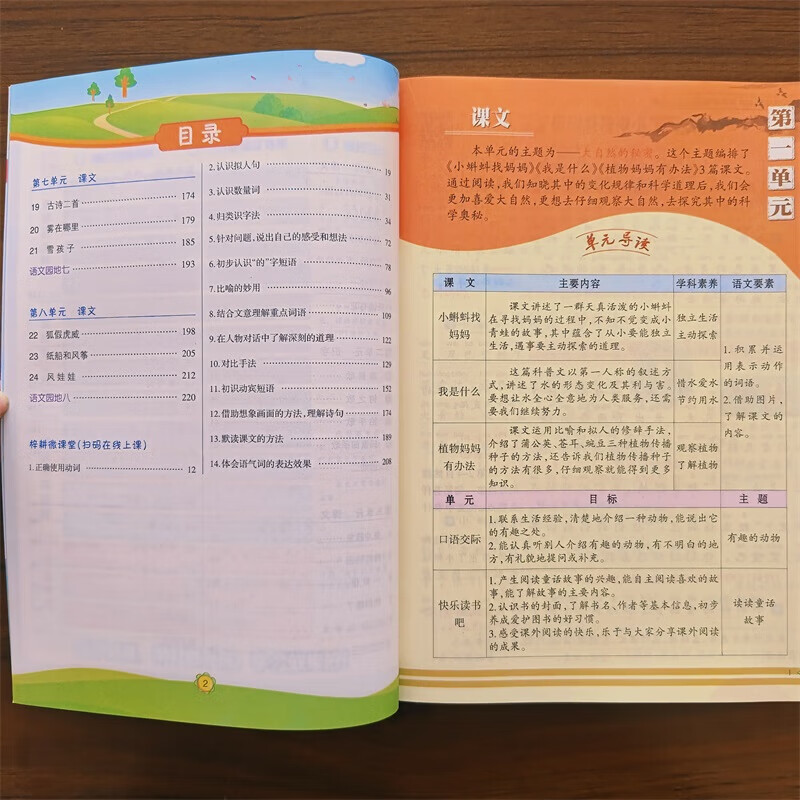 目录
第七单元 课文
19 古诗二首 174
20 雾在哪里 179
21 雪孩子 185
语文园地七 193
第八单元 课文
22 狐假虎威 198
23 纸船和风筝 205
24 风娃娃 212
语文园地八 220
梓耕微课堂(扫码在线上课)
1.正确使用动词 12
2.认识拟人句 19
3.认识数量词 31
4.归类识字法 34
5.针对问题,说出自己的感受和想法 72
6.初步认识“的”字短语 78
7.比喻的妙用 96
8.结合文意理解重点词语 109
9.在人物对话中了解深刻的道理 122
10.对比手法 129
11.初识动宾短语 152
12.借助想象画面的方法,理解诗句 174
13.默读课文的方法 189
14.体会语气词的表达效果 208
2
第一单元
课文
本单元的主题为——大自然的秘密。这个主题编排了
《小蝌蚪找妈妈》《我是什么》《植物妈妈有办法》3篇课文。
通过阅读,我们知晓其中的变化规律和科学道理后,我们会
更加喜爱大自然,更想去仔细观察大自然,去探究其中的科
学奥秘。
单元导读
课 文 主要内容 学科素养 语文要素
小蝌蚪找
妈妈
课文讲述了一群天真活泼的小蝌蚪
在寻找妈妈的过程中,不知不觉变成小
青蛙的故事,其中蕴含了从小要能独立
生活,遇事要主动探索的道理。
独立生活
主动探索
我是什么
这篇科普文以第一人称的叙述方
式,讲述了水的形态变化及其利与害。
要想让水全心全意地为人类服务,还需
要我们继续努力。
惜水爱水
节约用水
植物妈妈
有办法
课文运用比喻和拟人的修辞手法,
介绍了蒲公英、苍耳、豌豆三种植物传播
种子的方法,还告诉我们植物传播种子
的方法有很多,仔细观察就能得到更多
知识。
观察植物
了解植物
1.积累并运
用表示动作
的词语。
2.借助图片,
了解课文的
内容。
单 元 目 标 主 题
口语交际
1.联系生活经验,清楚地介绍一种动物,能说出它
的有趣之处。
2.能认真听别人介绍有趣的动物,有不明白的地
方,有礼貌地提问或补充。
有趣的动物
快乐读书
吧
1.产生阅读童话故事的兴趣,能自主阅读喜欢的故
事,能了解故事的主要内容。
2.认识书的封面,了解书名、作者等基本信息,初步
养成爱护图书的好习惯。
3.感受课外阅读的快乐,乐于与大家分享课外阅读
的成果。
读读童话
故事